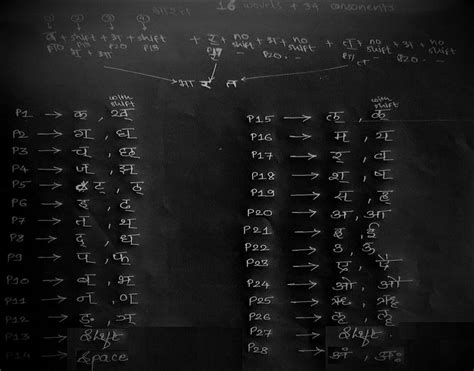 16 wovels + 34 consonents
① ② ③ ④
+ shift + अ + shift
P10 P13 P20 P13
+ र् + no shift + अ + no shift + त् + no shift + अ + no shift
P17 - P20 - P7 - P20 -
भा र त
with shift
P1 → क, ख
P2 → ग, घ
P3 → च, छ
P4 → ज, झ
P5 → ट, ठ
P6 → ड, ढ
P7 → त, थ
P8 → द, ध
P9 → प, फ
P10 → ब, भ
P11 → न, ण
P12 →
P13 → Shift
P14 → Space
with shift
P15 →
P16 → म, य
P17 → र, व
P18 → श, ष
P19 → स, ह
P20 → अ, आ
P21 → इ, ई
P22 → उ, ऊ
P23 → ए, ऐ
P24 → ओ, औ
P25 → ऋ, ॠ
P26 →
P27 → Shift
P28 → अं, अः